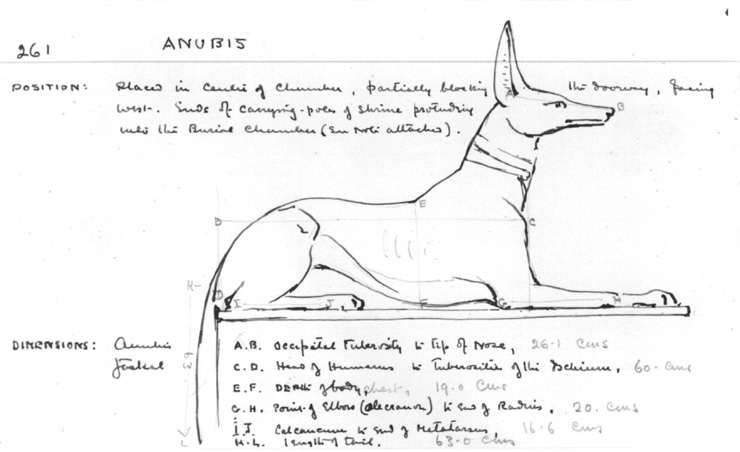 261 ANUBIS
POSITION: Placed in Centre of Chamber, partially blocking the doorway, facing
West. Ends of carrying-poles of shrine protruding
into the Burial Chamber (See Note attached).
A
B
E
D C
K
D I J F G H
63
L
DIMENSIONS: Anubis A.B. Occipital Tuberosity to tip of Nose, 26.1 Cms
Jackal C.D. Head of Humerus to Tuberosities of the Ischium, 60. Cms
E.F. DEPTH of body, chest, 19.0 Cms
G.H. Point of Elbow (Olecranon) to End of Radius, 20. Cms
I.J. Calcaneum to End of Metatarsus, 16.6 Cms
K.L. length of tail. 63.0 Cms